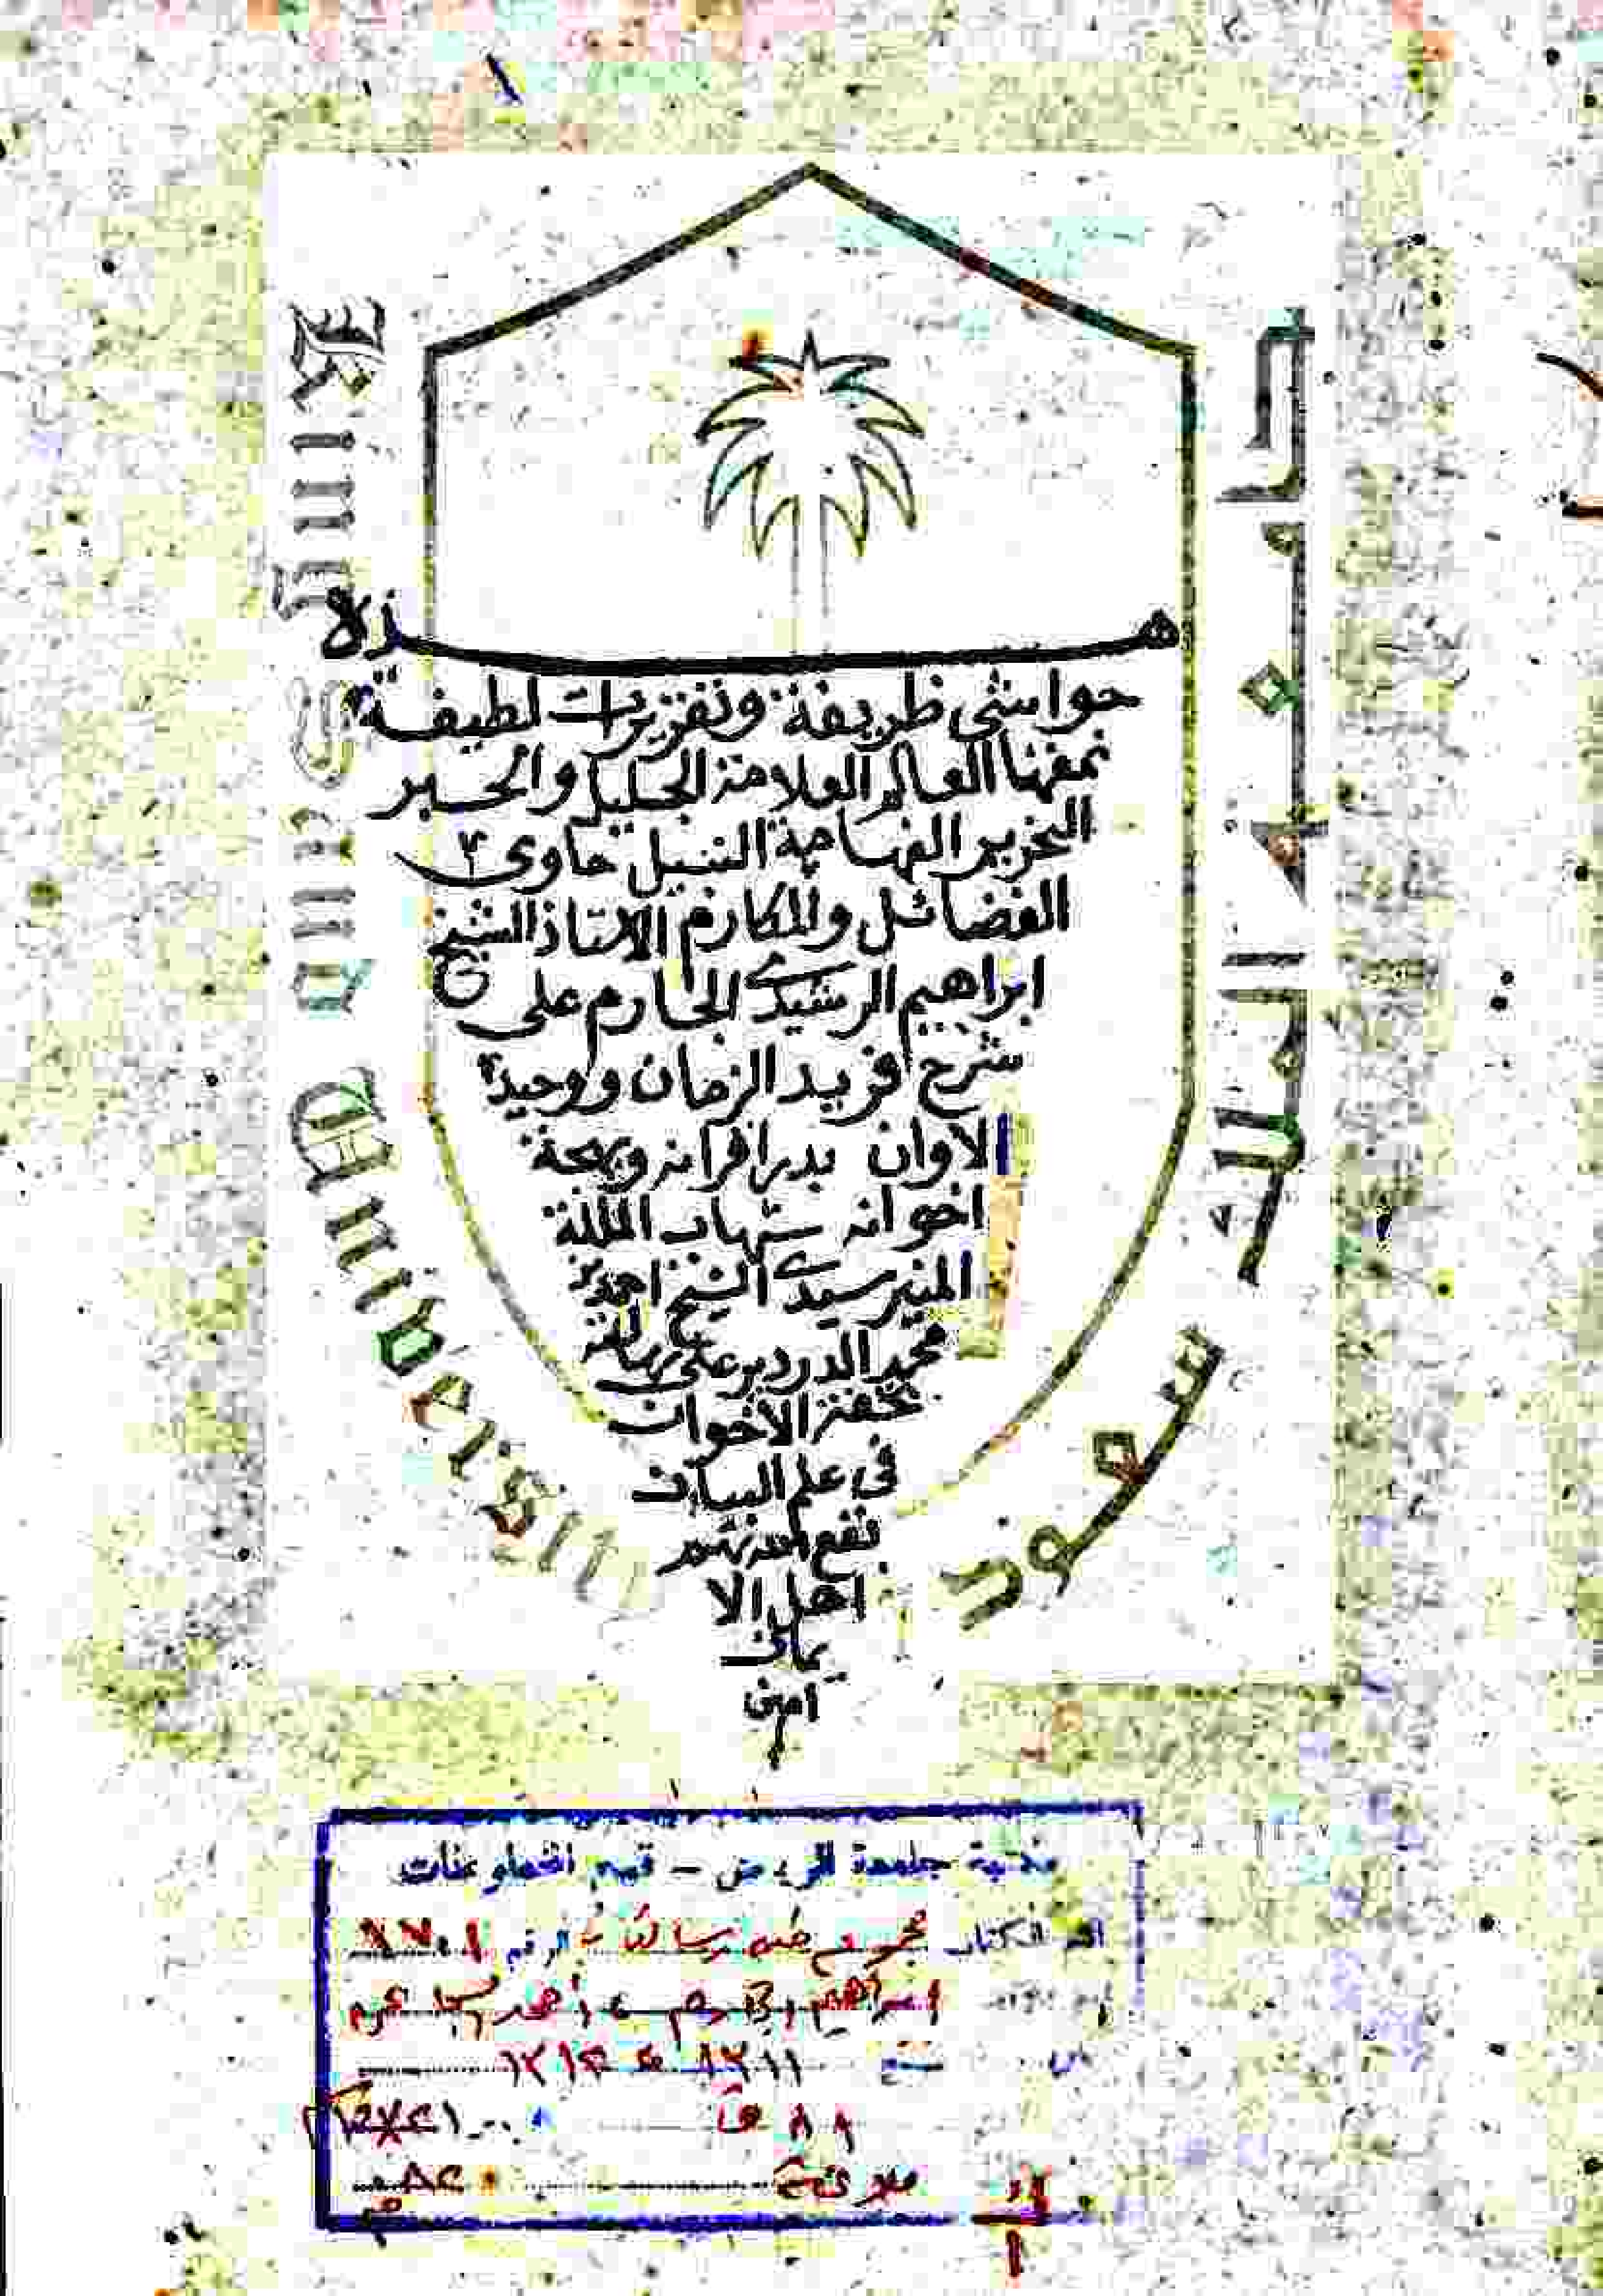 هذه
حواشي ظريفة وتقريرات لطيفة
نمقها العالم العلامة الجليل والحبر
النحرير الفهامة النبيل حاوى
الفضائل والمكارم الاستاذ الشيخ
ابراهيم الرشيدي الجارم على
شرح فريد الزمان ووحيد
الاوان بدر اقرانه وبهجة
اخوانه شهاب الملة
المنير سيدي الشيخ احمد
محمد الدردير على رسالته
تحفة الأخوان
فى علم البيان
نفع الله بهم
اهل الا
يمان
امين
King Saud University
جامعة الملك سعود
مكتبة جامعة الرياض - قسم المخطوطات
اسم الكتاب مجموع ضمنه رسالتان الرقم
ابراهيم الجارم
١٢١٤
٨٨ ق